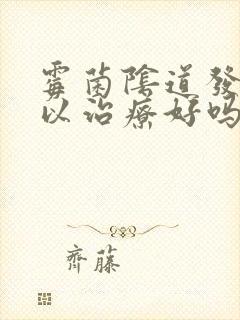 霉菌陰道發
以治療好嗎
齊藤